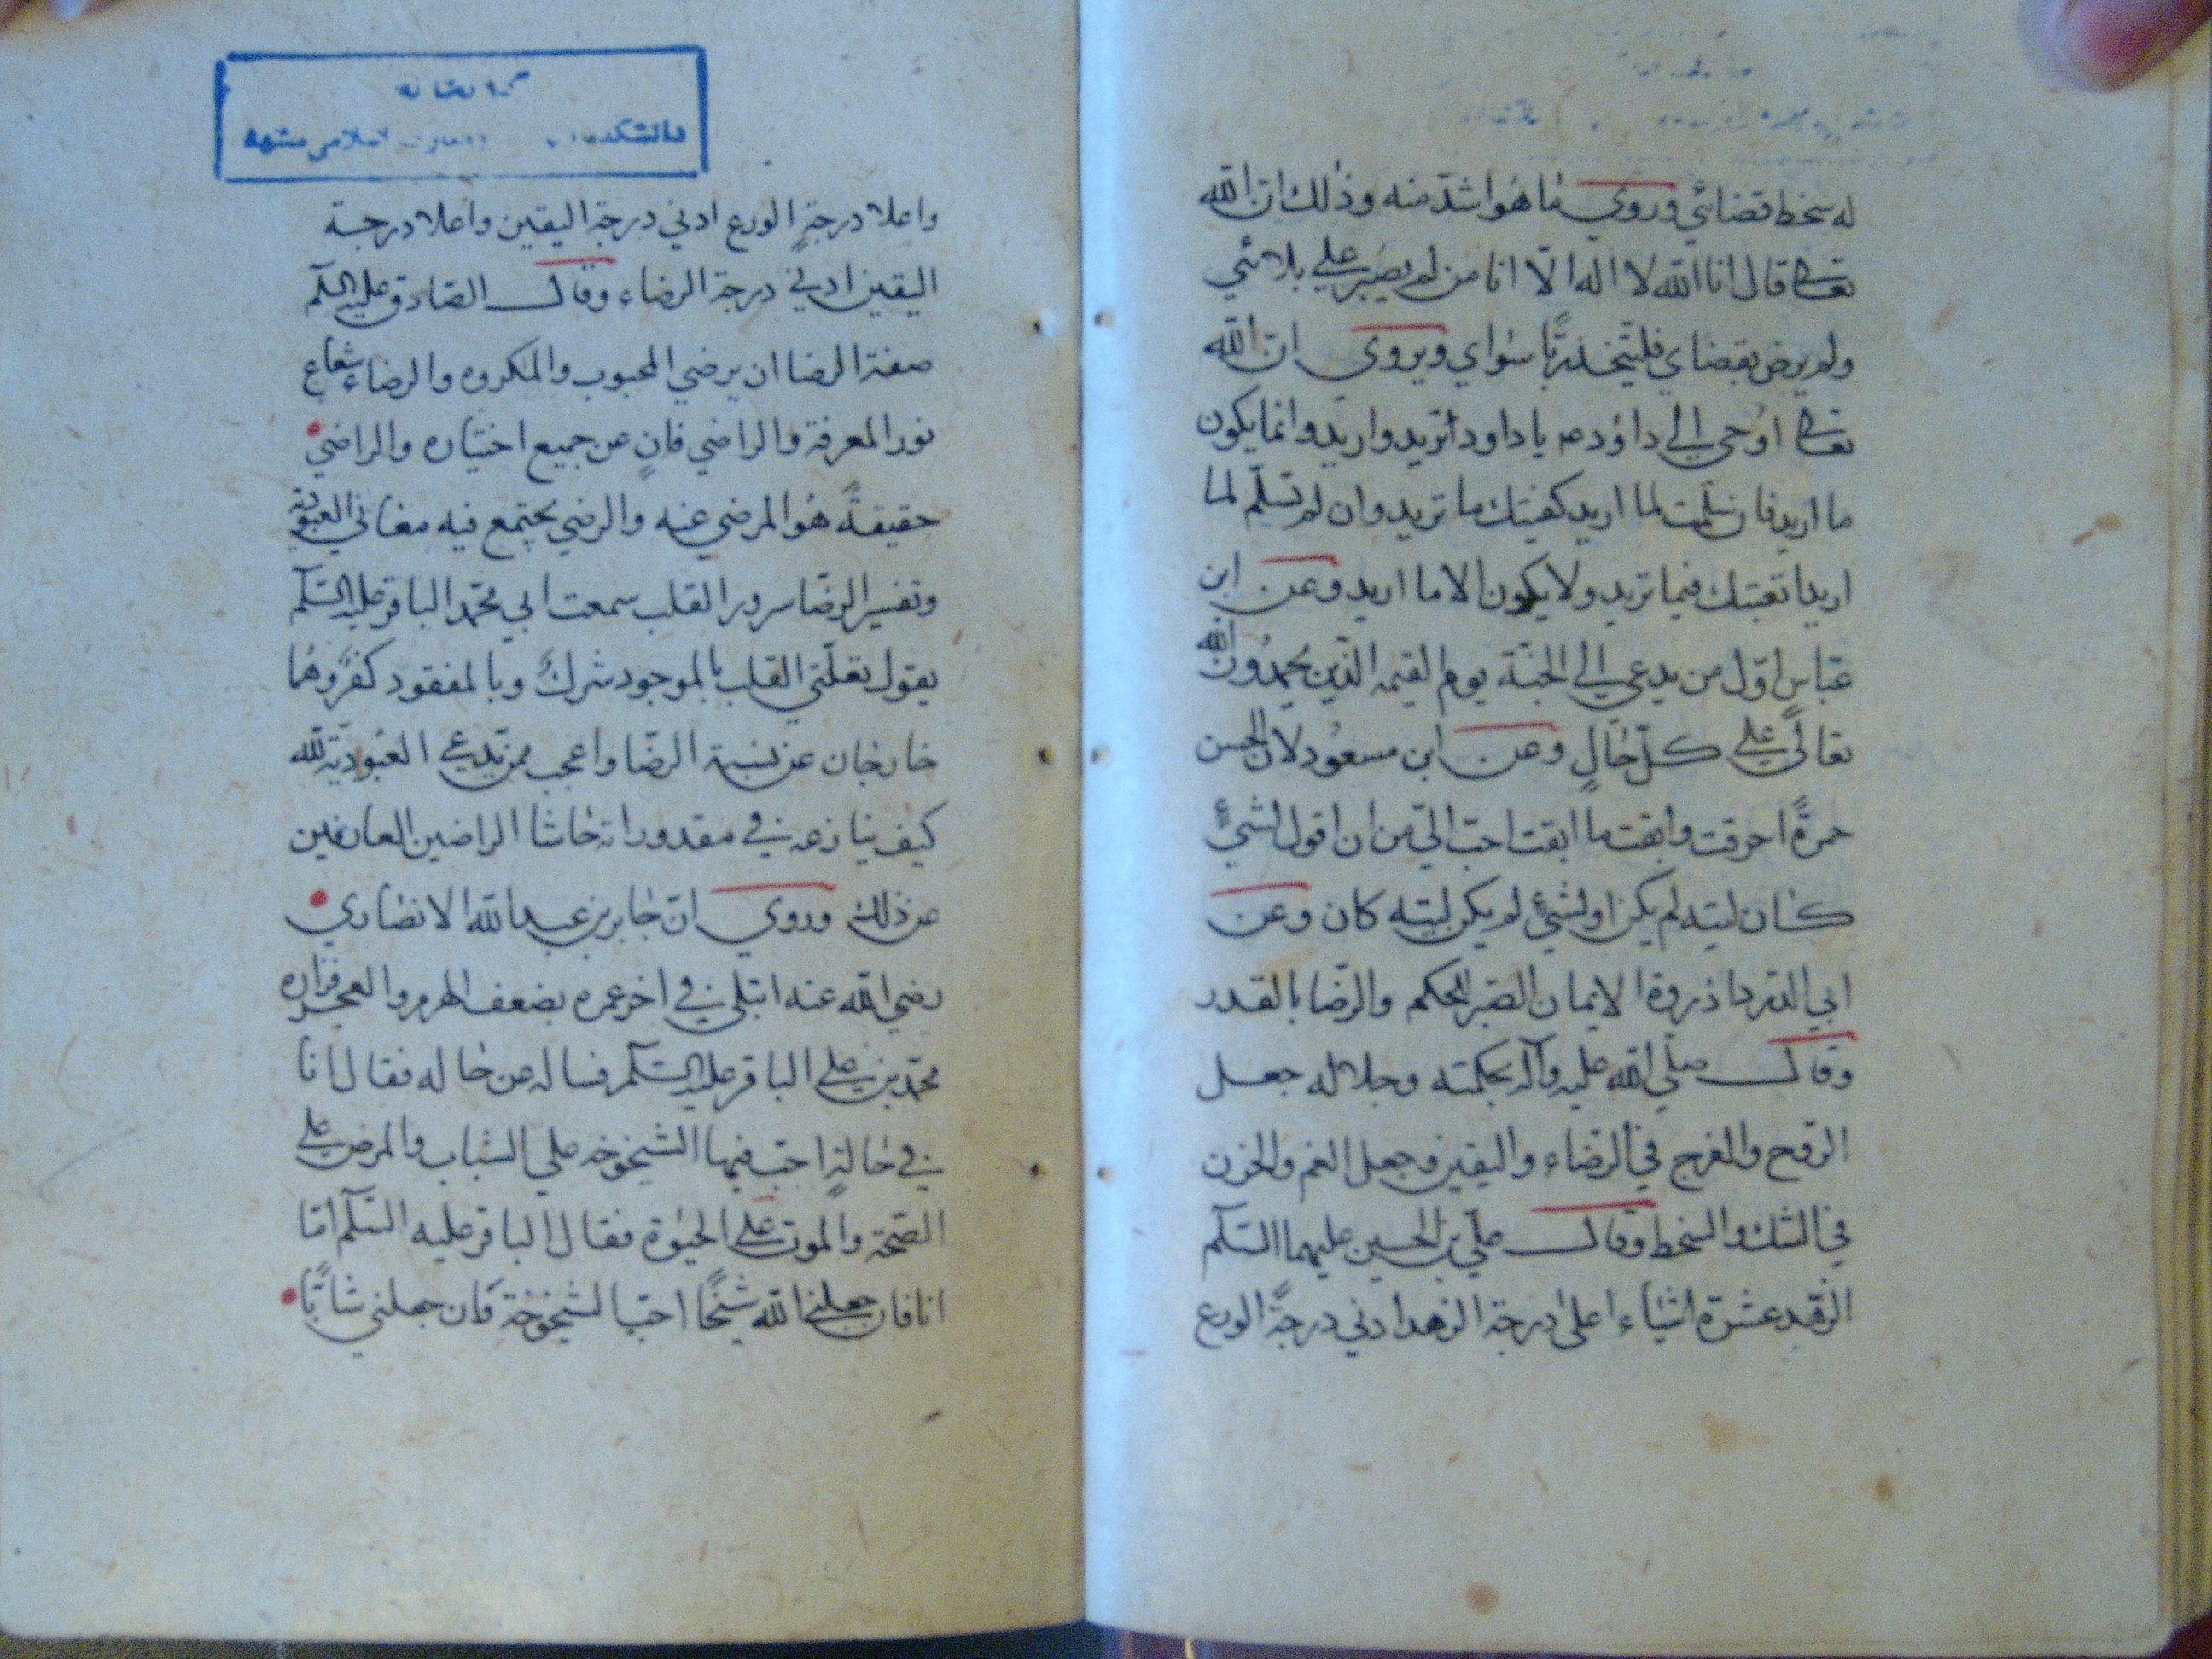 له سخط قضائي وروي ما هو اشد منه وذلك ان الله
تعالى قال انا الله لا اله الا انا من لم يصبر على بلائي
ولم يرض بقضاي فليتخذ ربًا سواي ويروي ان الله
تعالى اوحى الى داود ع يا داود أتريد واريد وانما يكون
ما اريد فان سلمت لما اريد كفيتك ما تريد وان لم تسلّم لما
اريد اتعبتك فيما تريد ولا يكون الا ما اريد وعن ابن
عباس اوّل من يدعى الى الجنّة يوم القيمه الذين يحمدون الله
تعالى على كلّ حالٍ وعن ابن مسعود لان الحس
جمرةً احرقت وابقت ما ابقت احبّ اليّ من ان اقول لشيءٍ
كان ليته لم يكن او لشيءٍ لم يكن ليته كان وعن
ابي الدرداء ذروة الايمان الصبر للحكم والرضا بالقدر
وقال صلى الله عليه وآله بحكمته وجلاله جعل
الروح والفرج في الرضاء واليقين وجعل الغم والحزن
في الشك والسخط وقال علي بن الحسين عليهما السلم
الزهد عشرة اشياء اعلى درجة الزهد ادني درجة الورع
كتابخانه
دانشكده اسلامى مشهد
واعلا درجةِ الورع ادني درجة اليقين واعلا درجة
اليقين ادني درجة الرضاء وقال الصادق عليه السلم
صفة الرضا ان يرضي المحبوب والمكروه والرضاء شعاع
نور المعرفة والراضي فانٍ عن جميع اختياره والراضي
حقيقةً هو المرضي عنه والرضي يجتمع فيه معاني العبودية
وتفسير الرضا سرور القلب سمعت ابي محمّد الباقر عليه السلم
يقول تعلّق القلب بالموجود شرك وبالمفقود كفر وهما
خارجان عن نسبة الرضا واعجب ممن يدعي العبوديّة لله
كيف ينازعه في مقدوراته حاشا الراضين العارفين
عن ذلك وروي انّ جابر بن عبد الله الانصاري
رضي الله عنه ابتلي في اخر عمره بضعف الهرم والعجز فزاره
محمّد بن علي الباقر عليه السلم فساله عن حاله فقال انا
في حالةٍ احبّ فيها الشيخوخه على الشباب والمرض على
الصحة والموت على الحيوة فقال الباقر عليه السلم امّا
انا فان جعلني الله شيخًا احبّ الشيخوخة فان جعلني شابًّا